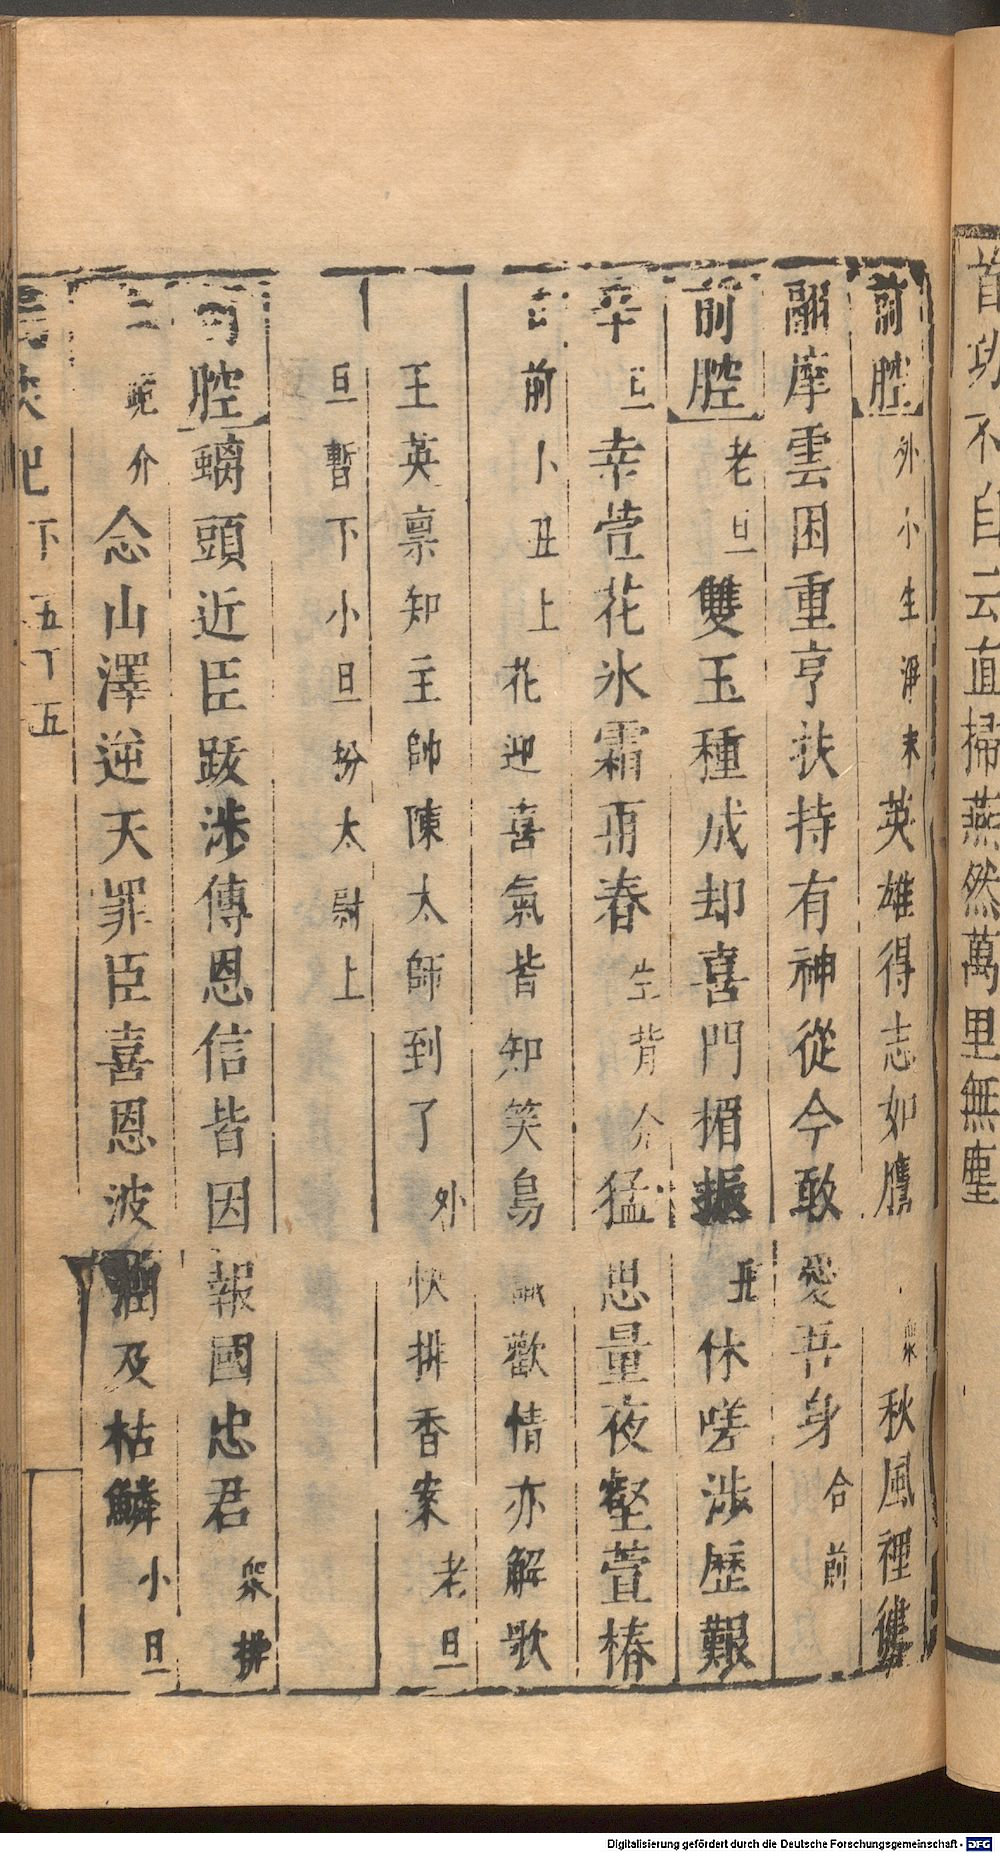 首功不自云直掃燕然萬里無塵
前腔外小生淨末英雄得志如鷹衆秋風裡雙
翮摩雲困重亨扶持有神從今敢愛吾身合前
前腔老旦雙玉種成却喜門楣振丑休嗟涉歷艱
辛旦幸萱花氷霜再春生背介猛思量夜壑萱椿
合前卜丑上花迎喜氣皆知笑鳥識歡情亦解歌
王英禀知主帥陳太師到了外快排香案老旦
旦暫下小旦扮太尉上
前腔螭頭近臣跋涉傳恩信皆因報國忠君衆排
介念山澤逆天罪臣喜恩波潤及枯鱗小旦
記下五十五
Digitalisierung gefördert durch die Deutsche Forschungsgemeinschaft - DFG